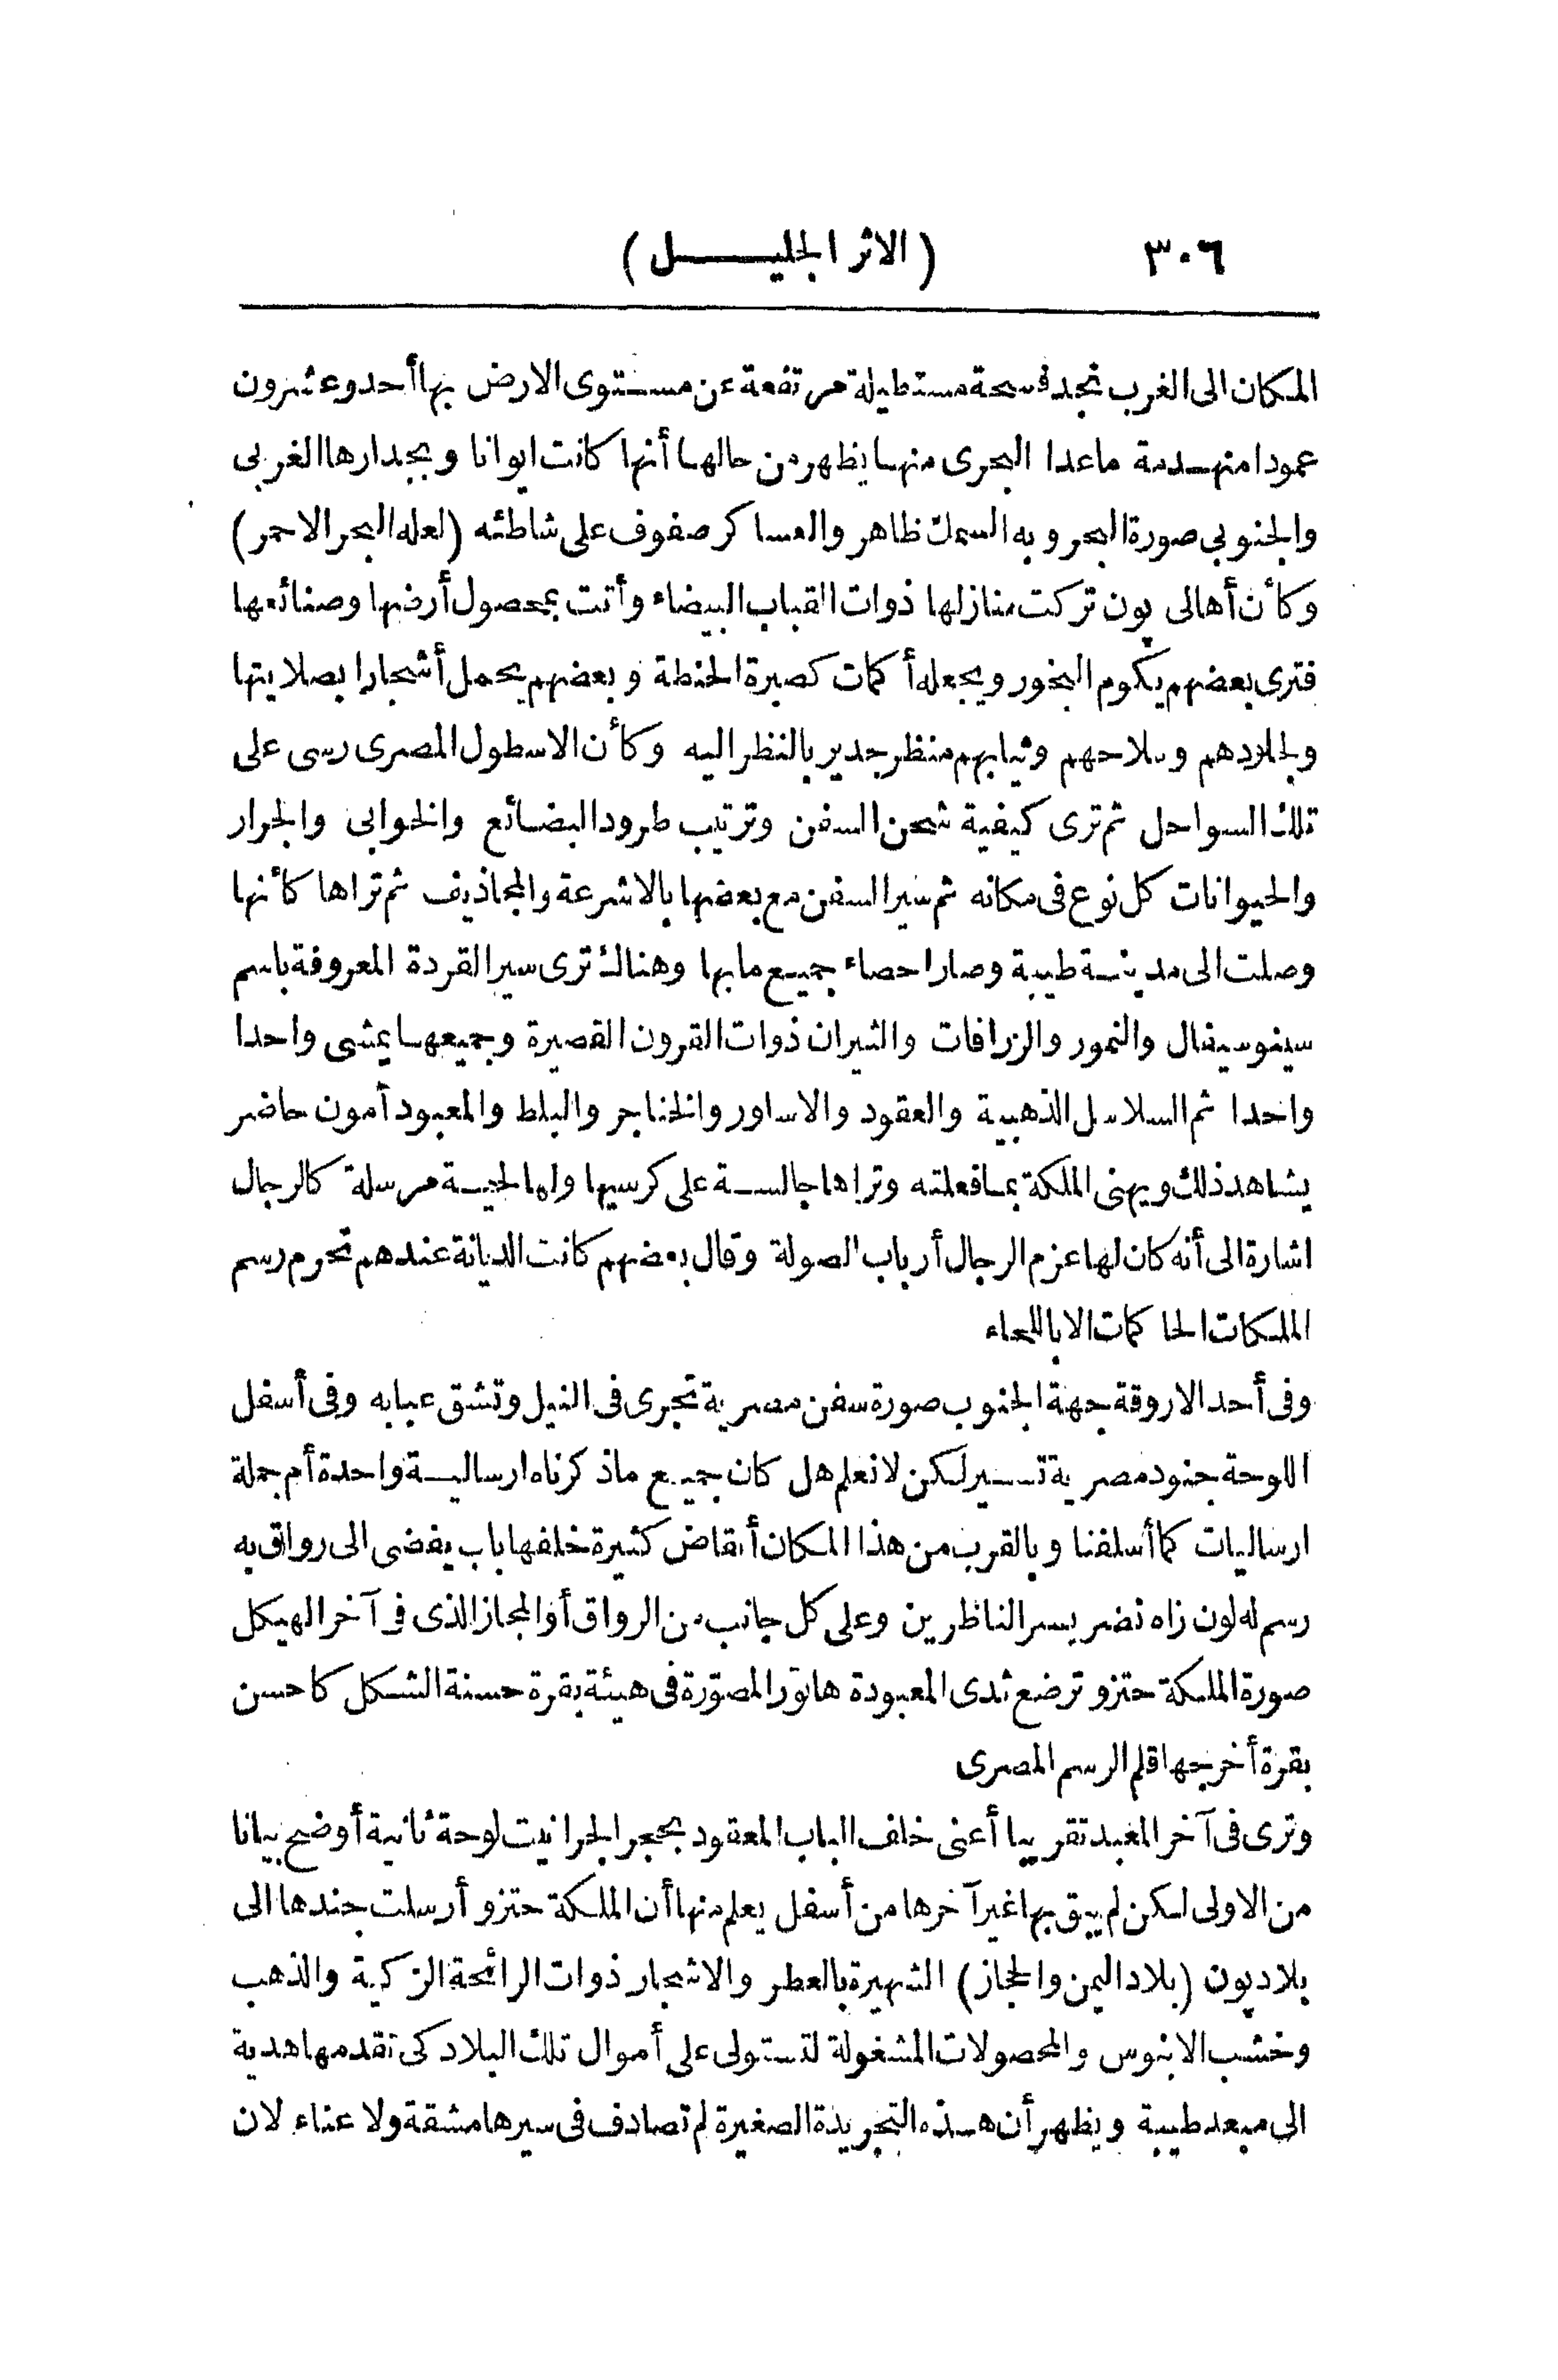 ٣٠٦ (الاثر الجليل)
المكان الى الغرب تجد فسحة مستطيلة مرتفعة عن مستوى الارض بها أحد وعشرون
عمودا منهدمة ماعدا البحرى منها يظهر من حالها أنها كانت ايوانا وبجدارها الغربى
والجنوبى صورة البحر وبه السمك ظاهر والعساكر صفوف على شاطئه (لعله البحر الاحمر)
وكأن أهالى پون تركت منازلها ذوات القباب البيضاء وأتت بمحصول أرضها وصنائعها
فترى بعضهم يكوم البخور ويجعله أكمات كصبرة الحنطة وبعضهم يحمل أشجارا بصلايتها
ولجلودهم وسلاحهم وثيابهم منظر جدير بالنظر اليه وكأن الاسطول المصرى رسى على
تلك السواحل ثم ترى كيفية شحن السفن وترتيب طرود البضائع والخوابى والجرار
والحيوانات كل نوع فى مكانه ثم سير السفن مع بعضها بالاشرعة والمجاذيف ثم تراها كأنها
وصلت الى مدينة طيبة وصار احصاء جميع مابها وهناك ترى سير القردة المعروفة باسم
سينوسيفال والنمور والزرافات والثيران ذوات القرون القصيرة وجميعها يمشى واحدا
واحدا ثم السلاسل الذهبية والعقود والاساور والخناجر والبلط والمعبود أمون حاضر
يشاهد ذلك ويهنى الملكة بما فعلته وتراها جالسة على كرسيها ولها لحية مرسلة كالرجال
اشارة الى أنه كان لها عزم الرجال أرباب الصولة وقال بعضهم كانت الديانة عندهم تحرم رسم
الملكات الحاكمات الا باللحاء
وفى أحد الاروقة جهة الجنوب صورة سفن مصرية تجرى فى النيل وتشق عبابه وفى أسفل
اللوحة جنود مصرية تسير لكن لانعلم هل كان جميع ماذكرناه ارسالية واحدة أم جملة
ارساليات كما أسلفنا وبالقرب من هذا المكان أنقاض كثيرة خلفها باب يفضى الى رواق به
رسم له لون زاه نضر يسر الناظرين وعلى كل جانب من الرواق أو المجاز الذى فى آخر الهيكل
صورة الملكة حتزو ترضع ثدى المعبودة هاتور المصوّرة فى هيئة بقرة حسنة الشكل كاحسن
بقرة أخرجها قلم الرسم المصرى
وترى فى آخر المعبد تقريبا أعنى خلف الباب المعقود بحجر الجرانيت لوحة ثانية أوضح بيانا
من الاولى لكن لم يبق بها غير آخرها من أسفل يعلم منها أن الملكة حتزو أرسلت جندها الى
بلاد پون (بلاد اليمن والحجاز) الشهيرة بالعطر والاشجار ذوات الرائحة الزكية والذهب
وخشب الابنوس والمحصولات المشغولة لتستولى على أموال تلك البلاد كى تقدمها هدية
الى معبد طيبة ويظهر أن هذه التجريدة الصغيرة لم تصادف فى سيرها مشقة ولا عناء لان